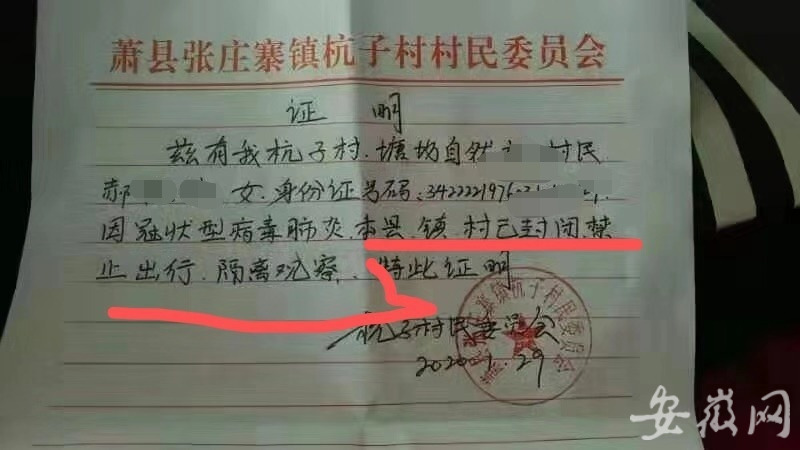 萧县张庄寨镇杭子村村民委员会
证 明
兹有我杭子村.塘坊自然 村民
郝 女.身份证号码:342222197
因冠状型病毒肺炎.本县.镇.村已封闭.禁
止出行.隔离观察.特此证明
杭子村民委员会
2020.1.29
张庄寨镇杭子村村民委员会
安徽网